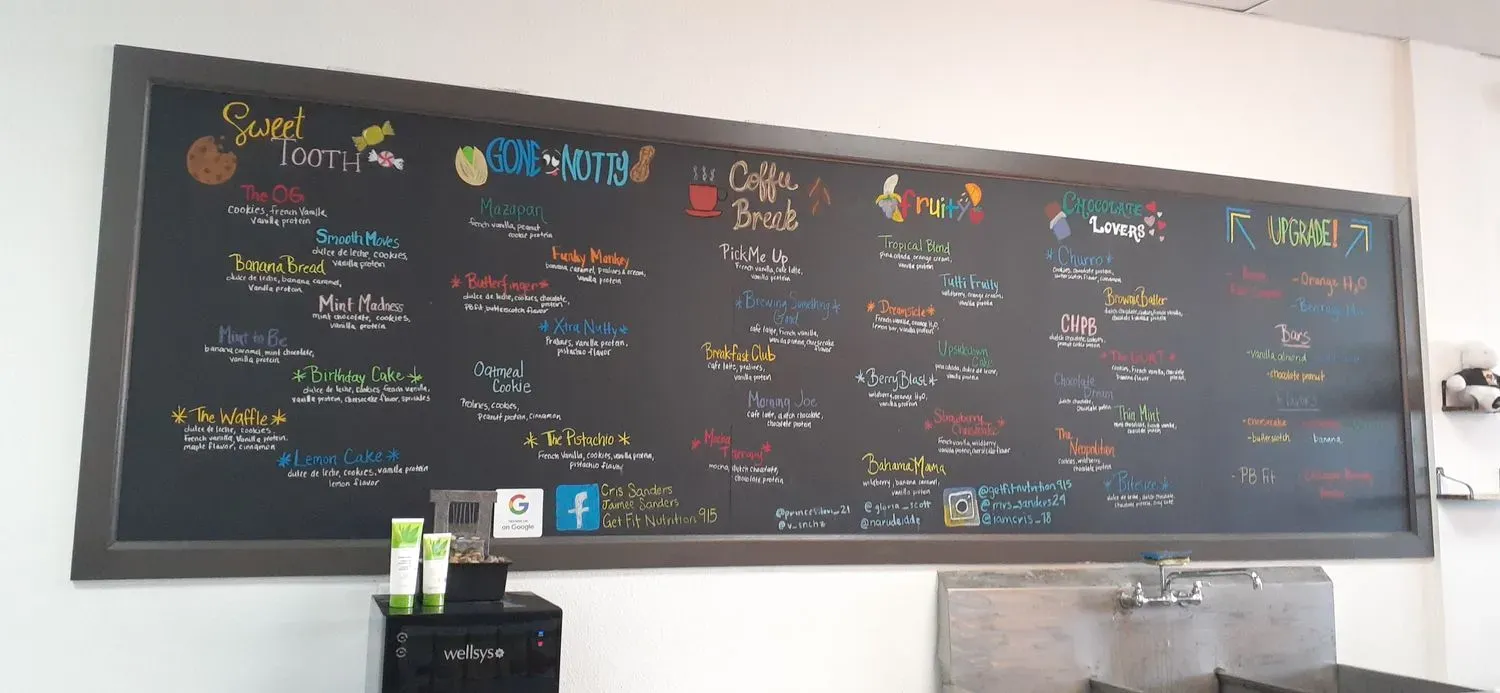 Sweet
TOOTH
The OG
cookies, french Vanilla
Vanilla protein
Smooth Moves
dulce de leche, cookies,
vanilla protein
Banana Bread
dulce de leche, banana caramel,
Vanilla protein
Mint Madness
mint chocolate, cookies,
vanilla protein
Mint to Be
banana caramel, mint chocolate,
vanilla protein
*Birthday Cake*
dulce de leche, cookies, french vanilla,
vanilla protein, cheesecake flavor, sprinkles
*The Waffle*
dulce de leche, cookies,
French vanilla, Vanilla protein,
maple flavor, cinnamon
*Lemon Cake*
dulce de leche, cookies, vanilla protein
lemon flavor
GONE NUTTY
Mazapan
french vanilla, peanut
cookie protein
Funky Monkey
banana caramel, pralines & cream,
vanilla protein
*Butterfinger*
dulce de leche, cookies, chocolate protein,
PB fit, butterscotch flavor
*Xtra Nutty*
Pralines, vanilla protein,
pistachio flavor
Oatmeal
Cookie
Pralines, cookies,
Peanut protein, cinnamon
*The Pistachio*
French Vanilla, cookies, vanilla protein,
pistachio flavor
Coffee
Break
PickMe Up
French vanilla, cafe latte,
vanilla protein
*Brewing Something*
Good
cafe latte, French vanilla,
vanilla protein, cheesecake
flavor
Breakfast Club
cafe latte, pralines,
vanilla protein
Morning Joe
cafe latte, dutch chocolate,
chocolate protein
*Mocha
Therapy*
mocha, dutch chocolate,
chocolate protein
fruity
Tropical Blend
Pina colada, orange cream,
vanilla protein
Tutti Fruity
wildberry, orange cream,
vanilla protein
*Dreamside*
French vanilla, orange H2O,
lemon bar, vanilla protein
Upsidedown
Cake
pina colada, dulce de leche,
vanilla protein
*BerryBlast*
wildberry, orange H2O,
vanilla protein
*Strawberry
Cheesecake*
French vanilla, wildberry,
vanilla protein, cheesecake flavor
Bahama Mama
wildberry, banana caramel,
vanilla protein
CHOCOLATE
LOVERS
*Churro*
Cookies, chocolate protein,
butterscotch flavor, cinnamon
Brownie Baller
dutch chocolate, cookies, french vanilla,
chocolate & vanilla protein
CHPB
dutch chocolate, cookies,
peanut cookie protein
*The GOAT*
cookies, French vanilla, chocolate protein,
banana flavor
Chocolate
dutch chocolate,
Chocolate protein
Thin Mint
mint chocolate, french vanilla,
chocolate protein
The
Neapolitan
Cookies, wildberry,
chocolate protein
*Bitesize*
dulce de leche, dutch chocolate,
chocolate protein,
UPGRADE!
-Orange H2O
Bars
-vanilla almond
-chocolate peanut
-cheesecake
-butterscotch
-banana
-PB Fit
Google
on Google
f
Cris Sanders
Jaimee Sanders
Get Fit Nutrition 915
@gloria_scott
@getfitnutrition915
@mrs_sanders24
@iamcris_18
wellsys